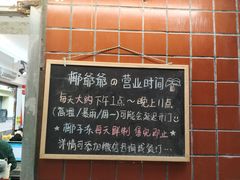 椰爷爷の营业时间
每天大约下午1点～晚上11点
(高温/暴雨/周一)可能会延迟开门
椰子冻每天鲜制 售完即止
详情可添加微信咨询或预订…